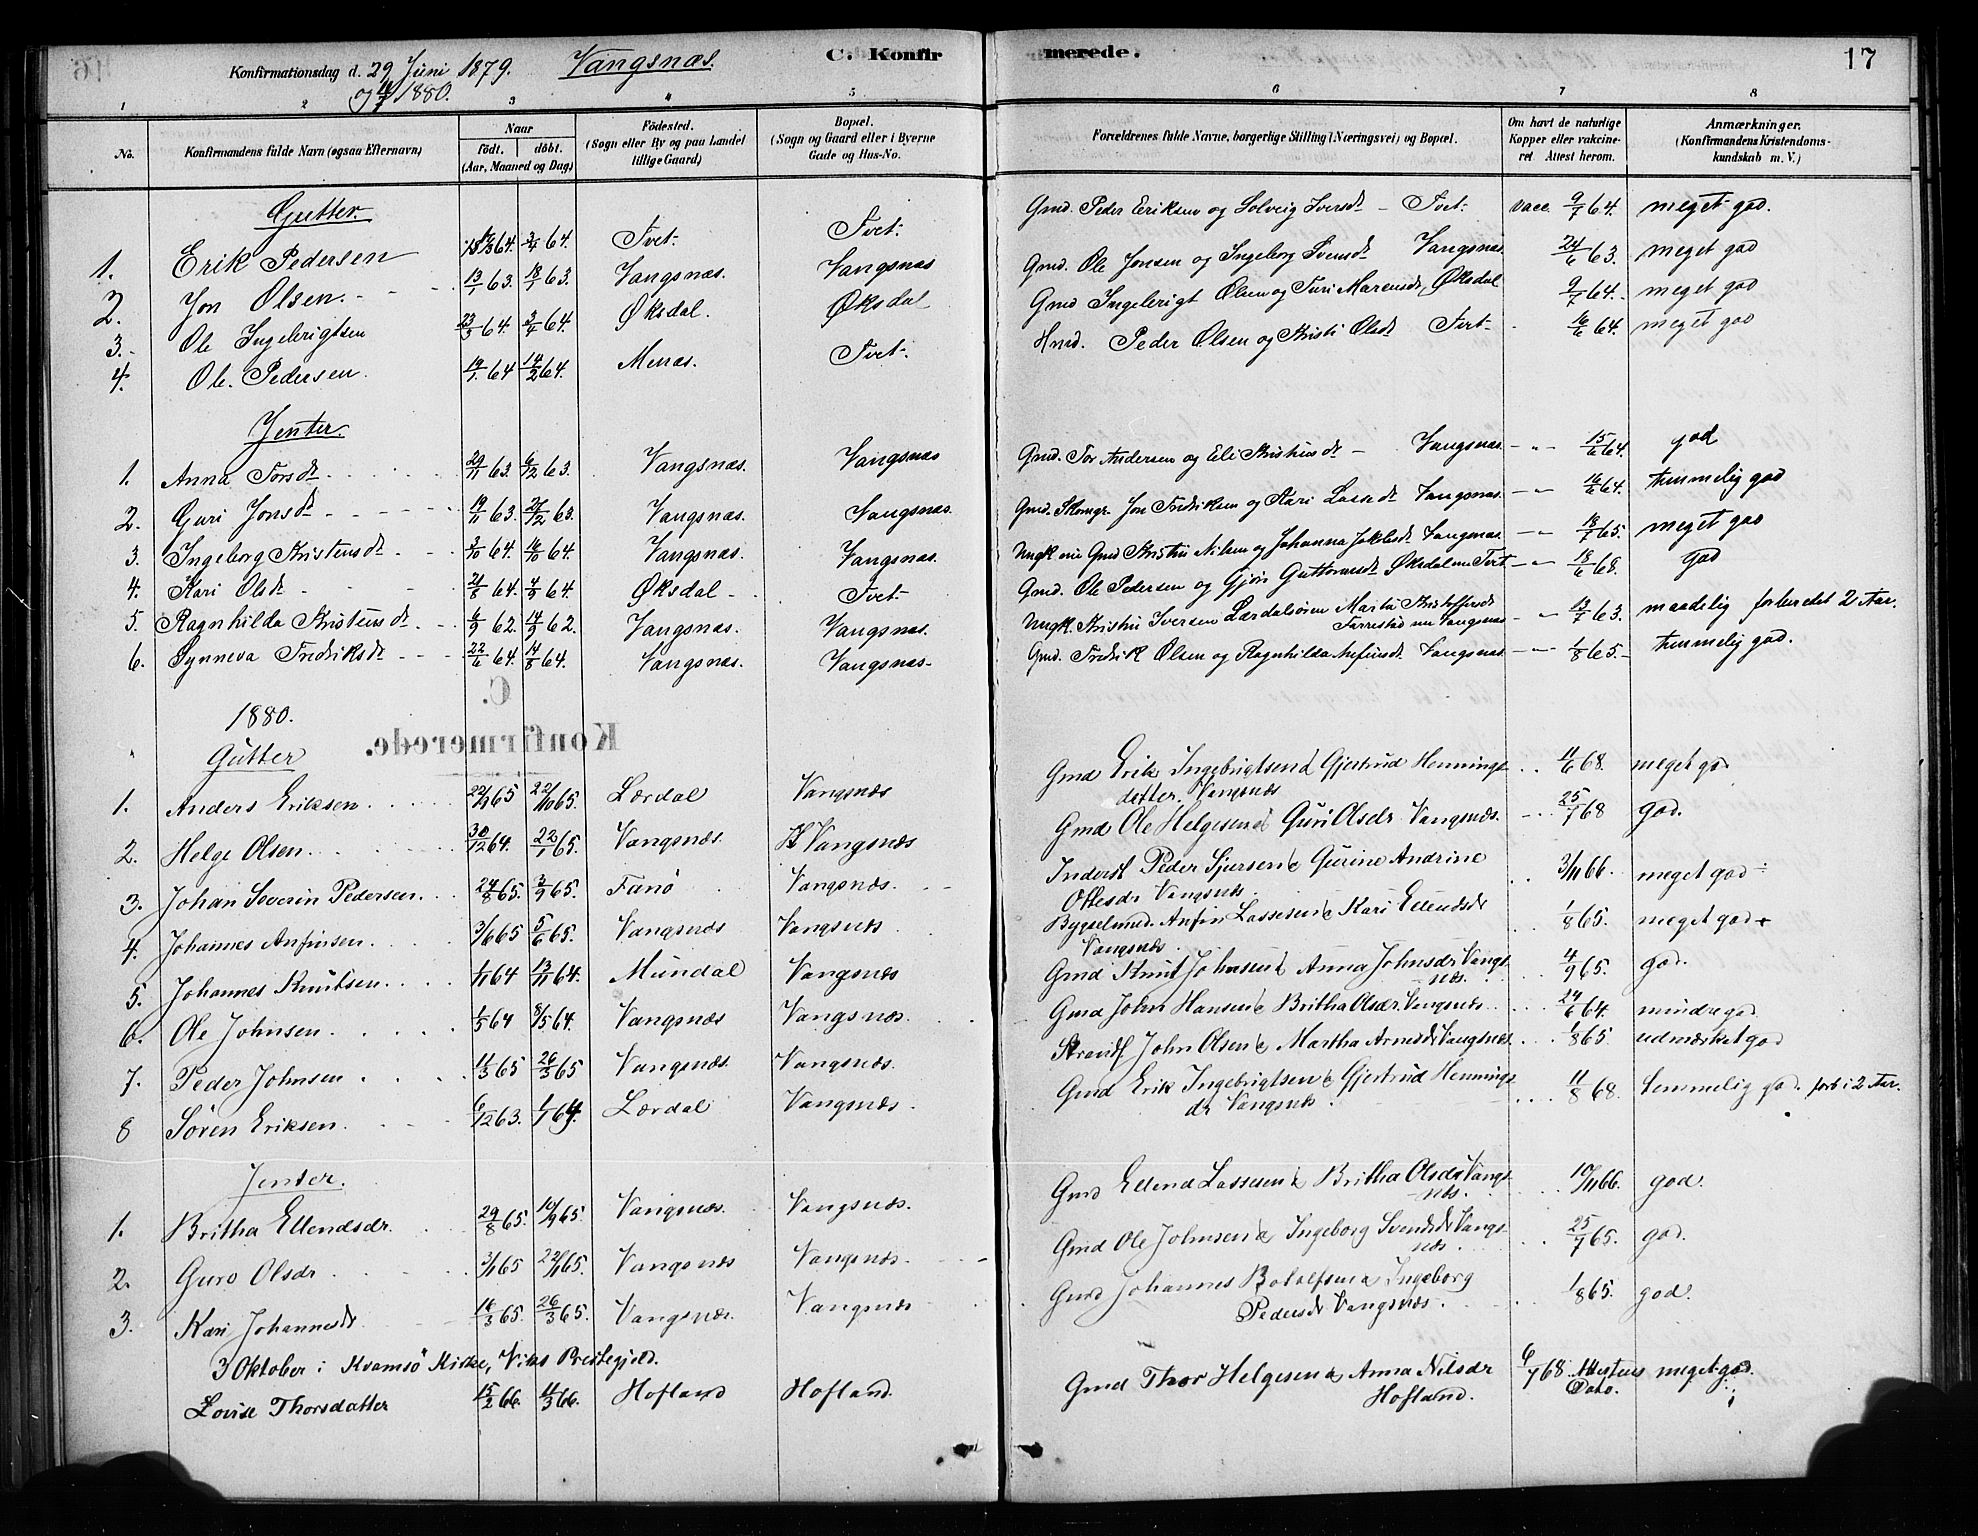 Konfirmationsdag d. 29 Juni 1879. Vangsnæs. C. Konfir merede. 17
og 11/7 1880.
1 2 3 4 5 6 7 8
No.
Konfirmandens fulde Navn (ogsaa Efternavn)
Naar
födt. döbt.
(Aar, Maaned og Dag)
Födested.
(Sogn eller By og paa Landet
tillige Gaard)
Bopæl.
(Sogn og Gaard eller i Byerne
Gade og Hus-No.
Forældrenes fulde Navne, borgerlige Stilling (Næringsvei) og Bopæl.
Om havt de naturlige
Kopper eller vakcine-
ret Attest herom.
Anmærkninger.
(Konfirmandens Kristendoms-
kundskab m. V.)
Gutter.
1. Erik Pedersen 64. 3/4 64. Tvet. Tvet. Gmd. Peder Eriksen og Solveig Iversdt - Tvet. vacc. 9/7 64. meget god.
2. Jon Olsen. 13/1 63. 18/1 63. Vangsnæs. Vangsnæs Gmd. Ole Jonsen og Ingeborg Svensdt Vangsnæs. 24/6 63. meget god
3. Ole Ingebrigtsen 23/3 64. 3/4 64. Øksdal. Øksdal Gmd Ingebrigt Olsen og Turi Øksdal 9/7 64. meget god
4. Ole Pedersen. 19/1 64 14/2 64. Menæs. Tvet. Hmd. Peder Olsen og Kristi Olsdt Tvet. 16/6 64. meget god
Jenter.
1. Anna Torsdt 29/11 63. 6/12 63. Vangsnæs. Vangsnæs Gmd. Tor Andersen og Eli Kristensdt - Vangsnæs. 15/6 64. god
2. Guri Jonsdt 19/11 63. 27/12 63. Vangsnæs. Vangsnæs. Gmd. Skomgr. Jon Fredriksen og Kari Lassedt Vangsnæs. 16/6 64. temmelig god
3. Ingeborg Kristensdt 3/10 64. 16/10 64. Vangsnæs. Vangsnæs. Ungk. nu Gmd Kristen Nilsen og Johanna Vangsnæs. 18/7 65. meget god
4. Kari Olsdt 21/8 64. 4/9 64. Øksdal Tvet. Gmd. Ole Pedersen og Gjöri Guttormsdt Øksdal nu Tvet 18/6 68. god
5. Ragnhilda Kristensdt 6/9 62. 14/9 62. Vangsnæs. Vangsnæs. Ungk. Kristen Iversen Lærdalsören Marta Kristoffersdt
nu Vangsnæs 12/7 63. maadelig forberedet 2 Aar.
6. Synneva Fredriksdt 22/6 64. 14/8 64. Vangsnæs. Vangsnæs. Gmd. Fredrik Olsen og Ragnhilda Anfinsdt. Vangsnæs. 1/8 65. temmelig god.
C.
Konfirmerede.
1880.
Gutter
1. Anders Eriksen 22/9 65 22/10 65. Lærdal Vangsnæs Gmd Erik Ingebrigtsen & Gjertrud Hennings-
datter. Vangsnæs 11/6 68. meget god
2. Helge Olsen. 30/12 64. 22/1 65. Vangsnæs. Vangsnæs Gmd Ole Helgesen & Guri Olsdr Vangsnæs. 25/7 68 god.
3. Johan Severin Pedersen. 27/8 65. 3/9 65. Fanö Vangsnæs. Inderst Peder Sjursen & Gurine Andrine
Ottesdr Vangsnæs. 3/11 66. meget god
4. Johannes Anfinsen. 3/6 65 5/6 65. Vangsnæs Vangsnæs Bygselmd. Anfin Lassesen & Kari Ellendsdr
Vangsnæs. 1/8 65. meget god
5. Johannes Knutsen. 1/11 64 13/11 64. Mundal Vangsnæs Gmd Knut Johnsen & Anna Johnsdr Vangs-
næs. 4/9 65. god.
6. Ole Johnsen. 1/5 64 8/5 64. Vangsnæs Vangsnæs. Gmd John Hansen & Britha Olsdr. Vangsnæs. 24/6 64. mindre god.
7. Peder Johnsen 11/3 65 26/3 65 Vangsnæs Vangsnæs. Strands. John Olsen & Martha Arnesdr Vangsnæs. 1/8 65. udmærket god
8 Sören Eriksen. 6/12 63. 1/1 64. Lærdal Vangsnæs. Gmd Erik Ingebrigtsen & Gjertrud Hennings-
dr Vangsnæs. 11/8 68. temmelig god. forb i 2 Aar.
Jenter.
1. Britha Ellendsdr. 29/8 65. 10/9 65. Vangsnæs. Vangsnæs. Gmd Ellend Lassesen & Britha Olsdr Vangs-
næs. 10/11 66. god.
2. Guro Olsdr 3/1 65 22/1 65. Vangsnæs Vangsnæs. Gmd Ole Johnsen & Ingeborg Svendsdr Vangs-
næs. 25/7 65. god.
3. Kari Johannesdr 16/3 65. 26/3 65. Vangsnæs. Vangsnæs Gmd Johannes Botolfsen & Ingeborg
Pedersdr Vangsnæs. 1/8 65. god.
3 Oktober i Kvamsö Kirke, Viks Prestegjeld.
Lovise Thorsdatter 15/2 66. 11/3 66. Hofland Hofland. Gmd Thor Helgesen & Anna Nilsdr
Hofland. 6/7 68. Attestens
Dato. meget god.